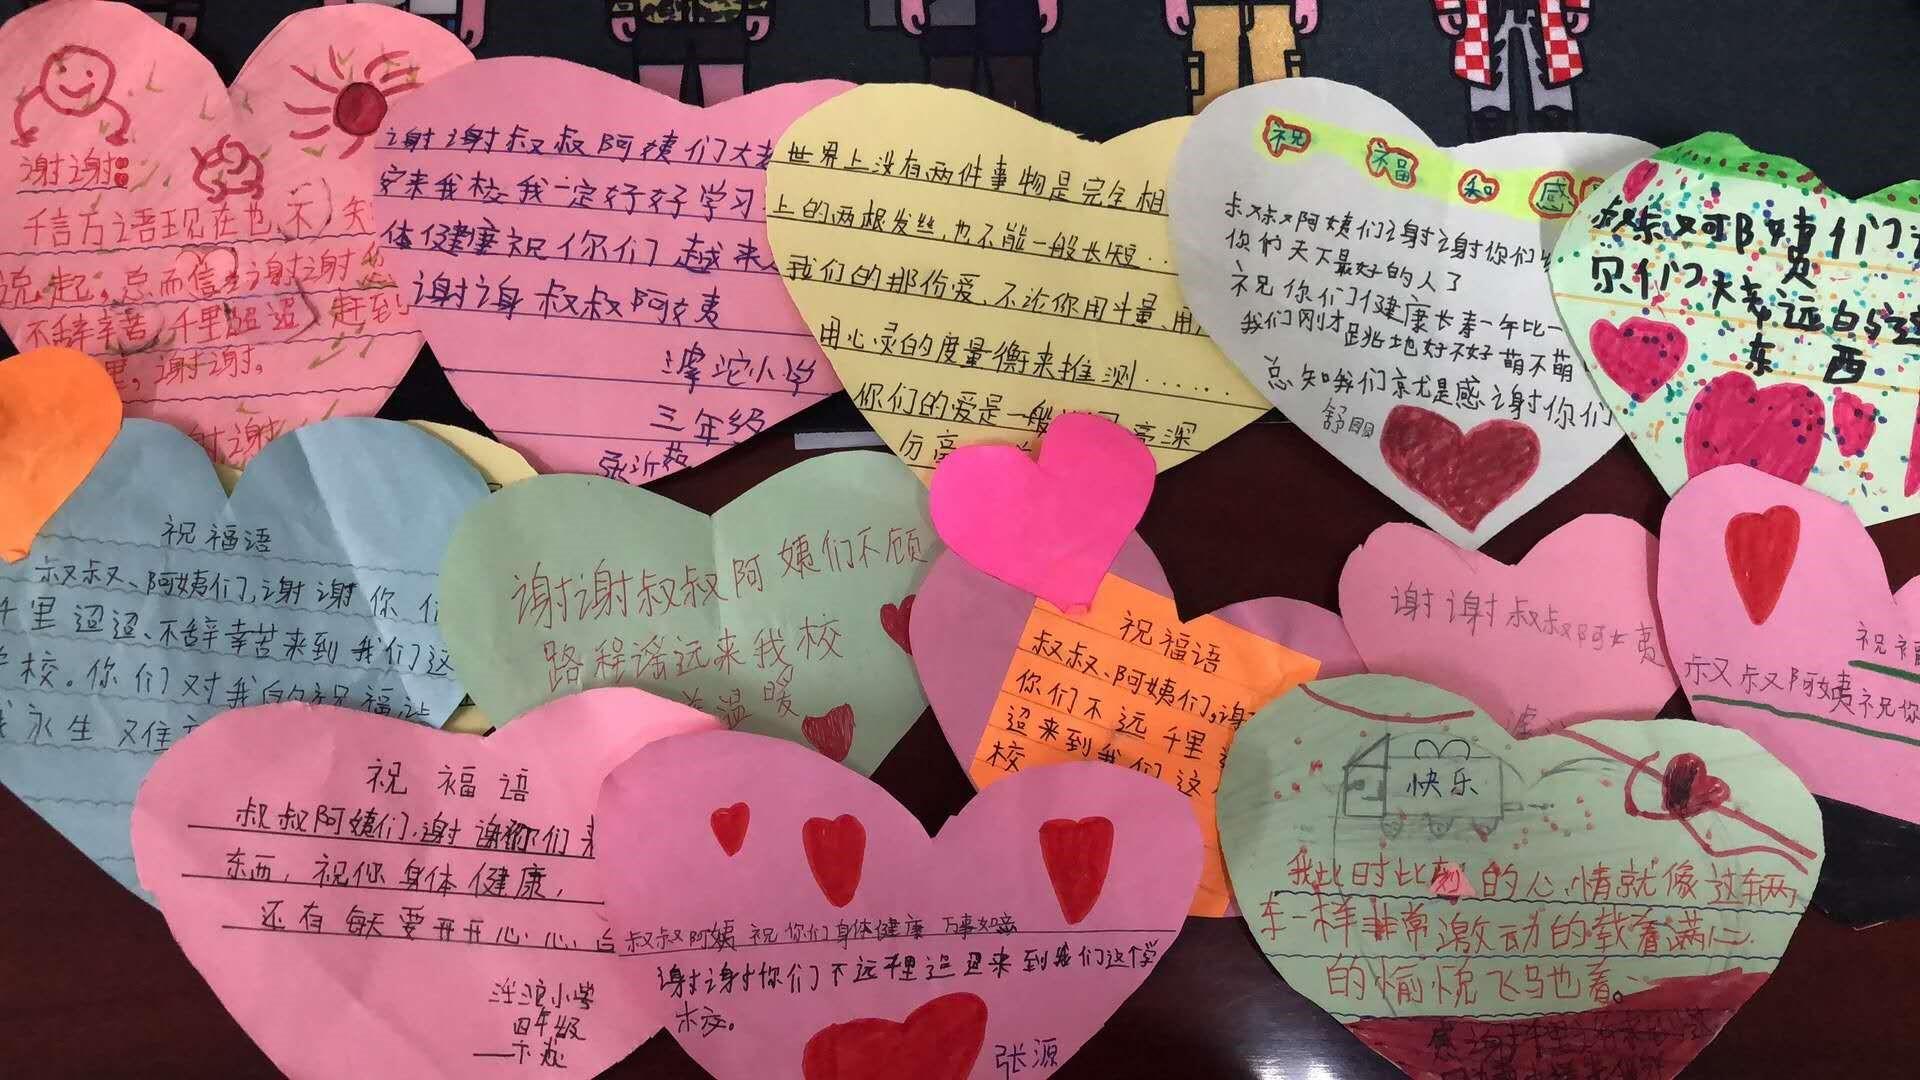 谢谢:
千言万语现在也不知
说起,总而信之谢谢您
不辞辛苦,千里迢迢,赶到
里,谢谢。
谢谢
谢谢叔叔阿姨们大老
安来我校,我一定好好学习
体健康祝你们越来
谢谢叔叔阿姨
滹沱小学
三年级
世界上没有两件事物是完全相
上的两根发丝,也不能一般长短...
我们的那份爱、不论你用斗量、用
用心灵的度量衡来推测......
你们的爱是一般
祝福和感
叔叔阿姨们谢谢你们
你的天下最好的人了
祝你们健康长寿一年比一
我们刚才跳地好不好萌不萌
总知我们京尤是感谢你们
叔叔阿姨们
你们大老远白给
东西
祝福语
叔叔、阿姨们,谢谢你们
千里迢迢、不辞辛苦来到我们这
学校。你们对我的祝福让
我永生又难
谢谢叔叔阿姨们不顾
路程谣远来我校
温暖
祝福语
叔叔、阿姨们,谢
你们不远千里
迢来到我们这
校
谢谢叔叔阿姨
祝福
叔叔阿姨祝你
祝福语
叔叔阿姨们,谢谢你们来
东西,祝你身体健康,
还有每天要开开心心
沱小学
四年级
叔叔阿姨祝你们身体健康万事如意
谢谢你们不远千里迢迢来到我们这个学
校。
张源
快乐
我此时此刻的心情就像这辆
车一样非常激动的载着满仁
的愉悦飞马也着。
感谢